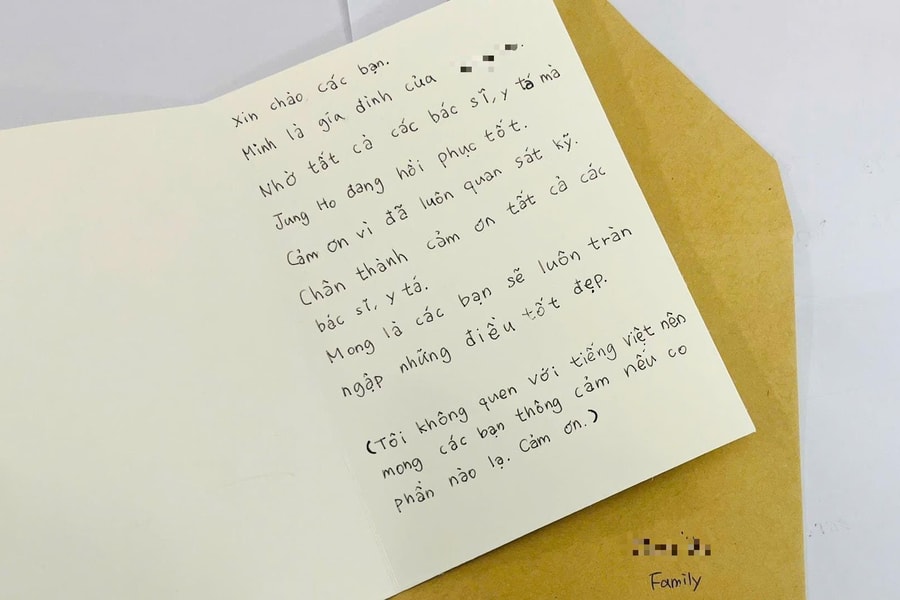 Xin chào các bạn.
Mình là gia đình của
Nhờ tất cả các bác sĩ, y tá mà
Jung Ho đang hồi phục tốt.
Cảm ơn vì đã luôn quan sát kỹ.
Chân thành cảm ơn tất cả các
bác sĩ, y tá.
Mong là các bạn sẽ luôn tràn
ngập những điều tốt đẹp.
(Tôi không quen với tiếng việt nên
mong các bạn thông cảm nếu co
phần nào lạ. Cảm ơn.)
Family